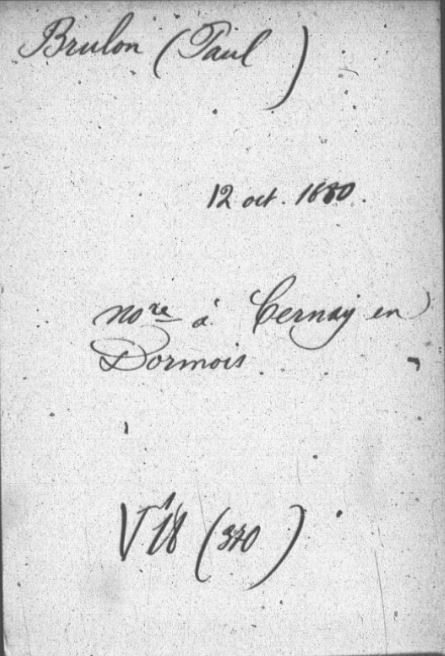 Brulon (Paul)
12 oct. 1680.
no^re à Cernay en
Dormois.
V^1 18 (370)